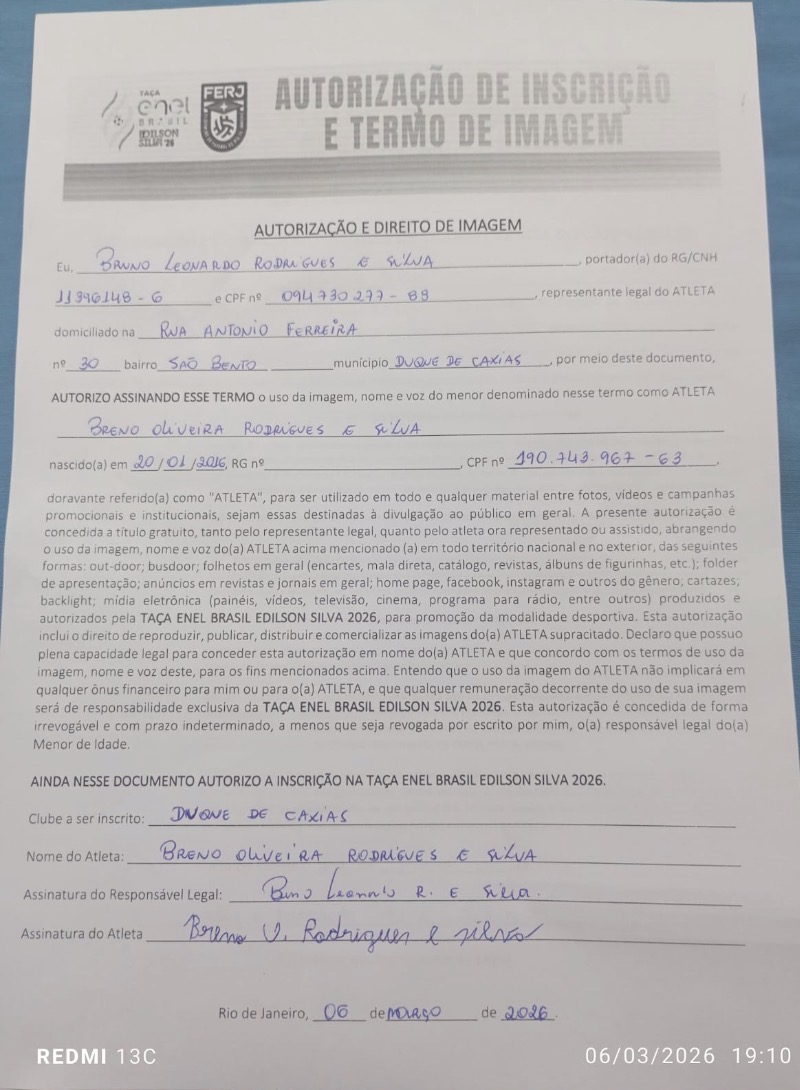 TAÇA
enel
BRASIL
EDILSON
SILVA'26
FERJ
AUTORIZAÇÃO DE INSCRIÇÃO
E TERMO DE IMAGEM
AUTORIZAÇÃO E DIREITO DE IMAGEM
Eu, BRUNO LEONARDO RODRIGUES E SILVA, portador(a) do RG/CNH
11396148-6 e CPF nº 094730277-88, representante legal do ATLETA
domiciliado na RUA ANTONIO FERREIRA
nº 30 bairro SAÕ BENTO município DUQUE DE CAXIAS, por meio deste documento,
AUTORIZO ASSINANDO ESSE TERMO o uso da imagem, nome e voz do menor denominado nesse termo como ATLETA
BRENO OLIVEIRA RODRIGUES E SILVA
nascido(a) em 20/01/2016, RG nº , CPF nº 190.743.967-63,
doravante referido(a) como "ATLETA", para ser utilizado em todo e qualquer material entre fotos, vídeos e campanhas
promocionais e institucionais, sejam essas destinadas à divulgação ao público em geral. A presente autorização é
concedida a título gratuito, tanto pelo representante legal, quanto pelo atleta ora representado ou assistido, abrangendo
o uso da imagem, nome e voz do(a) ATLETA acima mencionado (a) em todo território nacional e no exterior, das seguintes
formas: out-door; busdoor; folhetos em geral (encartes, mala direta, catálogo, revistas, álbuns de figurinhas, etc.); folder
de apresentação; anúncios em revistas e jornais em geral; home page, facebook, instagram e outros do gênero; cartazes;
backlight; mídia eletrônica (painéis, vídeos, televisão, cinema, programa para rádio, entre outros) produzidos e
autorizados pela TAÇA ENEL BRASIL EDILSON SILVA 2026, para promoção da modalidade desportiva. Esta autorização
inclui o direito de reproduzir, publicar, distribuir e comercializar as imagens do(a) ATLETA supracitado. Declaro que possuo
plena capacidade legal para conceder esta autorização em nome do(a) ATLETA e que concordo com os termos de uso da
imagem, nome e voz deste, para os fins mencionados acima. Entendo que o uso da imagem do ATLETA não implicará em
qualquer ônus financeiro para mim ou para o(a) ATLETA, e que qualquer remuneração decorrente do uso de sua imagem
será de responsabilidade exclusiva da TAÇA ENEL BRASIL EDILSON SILVA 2026. Esta autorização é concedida de forma
irrevogável e com prazo indeterminado, a menos que seja revogada por escrito por mim, o(a) responsável legal do(a)
Menor de Idade.
AINDA NESSE DOCUMENTO AUTORIZO A INSCRIÇÃO NA TAÇA ENEL BRASIL EDILSON SILVA 2026.
Clube a ser inscrito: DUQUE DE CAXIAS
Nome do Atleta: BRENO OLIVEIRA RODRIGUES E SILVA
Assinatura do Responsável Legal: Bruno Leonardo R. E Silva.
Assinatura do Atleta Breno O. Rodrigues e silva
Rio de Janeiro, 06 de MARÇO de 2026.
REDMI 13C
06/03/2026 19:10